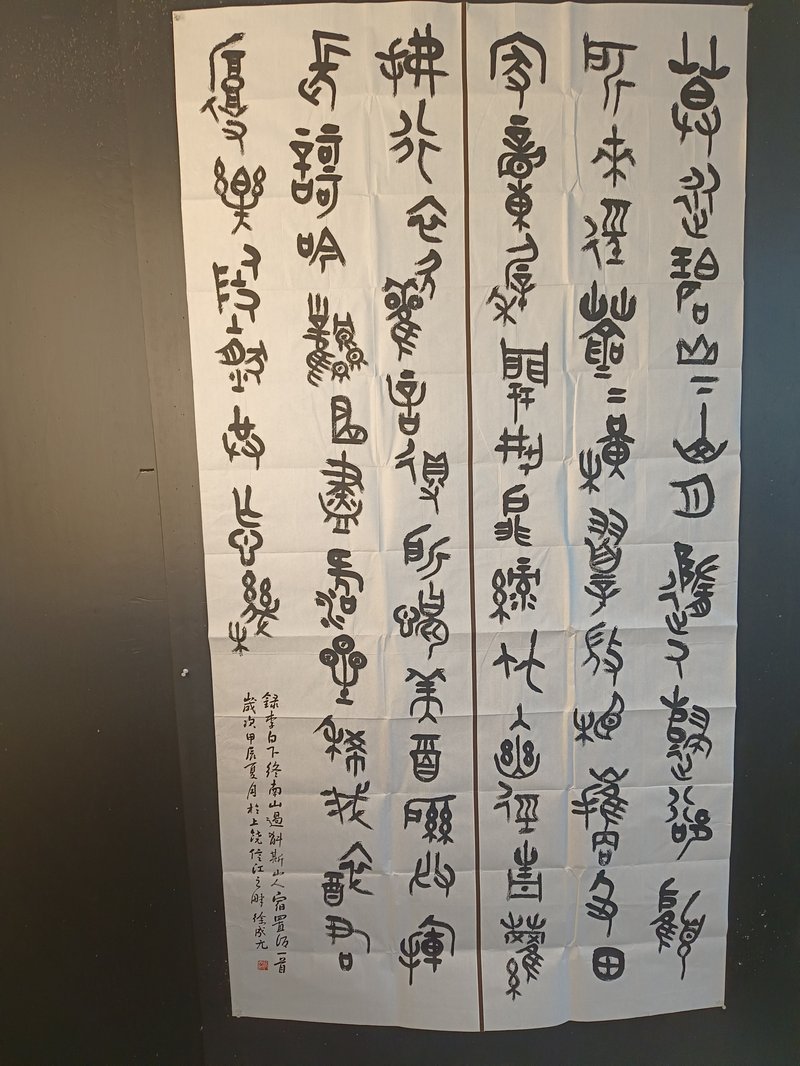 暮從碧山下山月隨人歸卻顧
所來徑蒼蒼橫翠微相攜及田
家童稚開荊扉綠竹入幽徑青蘿
拂行衣歡言得所憩美酒聊共揮
長歌吟松風曲盡河星稀我醉君
復樂陶然共忘機
錄李白下終南山過斛斯山人宿置酒一首
歲次甲辰夏月於上饒信江之畔徐成